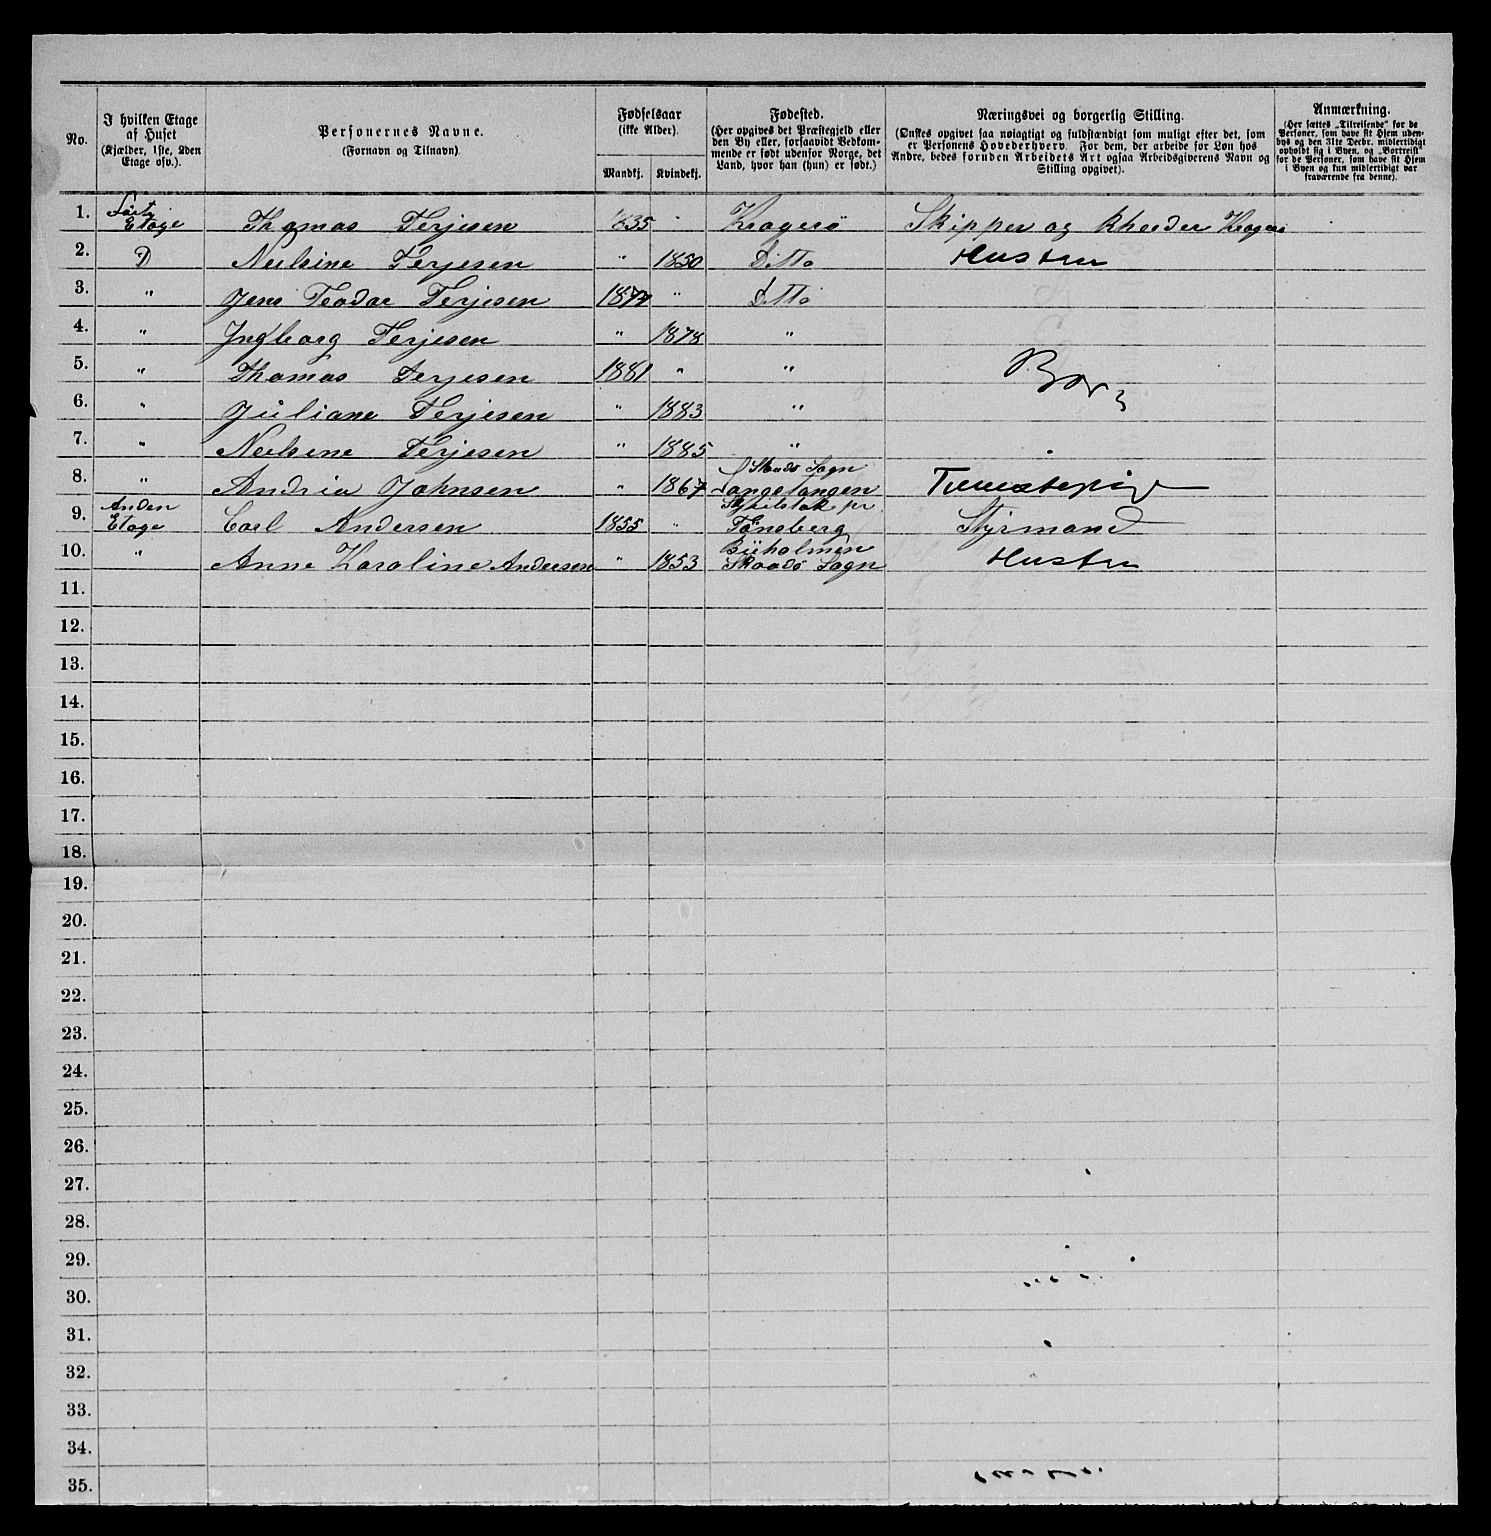 No.
I hvilken Etage
af Huset
(Kjælder, 1ste, 2den
Etage osv.).
Personernes Navne.
(Fornavn og Tilnavn).
Fødselsaar
(ikke Alder).
Mandkj. Kvindekj.
Fødested.
(Her opgives det Præstegjeld eller
den By eller, forsaavidt Vedkom-
mende er født udenfor Norge, det
Land, hvor han (hun) er født.)
Næringsvei og borgerlig Stilling.
(Ønskes opgivet saa nøiagtigt og fuldstændigt som muligt efter det, som
er Personens Hovederhverv. For dem, der arbeide for Løn hos
Andre, bedes foruden Arbeidets Art ogsaa Arbeidsgiverens Navn og
Stilling opgivet).
Anmærkning.
(Her sættes „Tilreisende" før de
Personer, som have sit Hjem uden-
bys og den 31te Decbr. midlertidigt
opholdt sig i Byen, og „Bortreist"
for de Personer, som have sit Hjem
i Byen og kun midlertidigt var
fraværende fra denne).
1. Etage Thomas Terjesen 1835 " Kragerø Skipper og Rheeder
2. D Neilsine Terjesen " 1850 Ditto Hustru
3. " Jens Teodor Terjesen 1877 " Ditto
4. " Ingborg Terjesen " 1878 "
5. " Thomas Terjesen 1881 " " Børn
6. " Juliane Terjesen " 1883 "
7. " Neilsene Terjesen " 1885 "
Skaadø Sogn
8. " Andria Johnsen " 1867 Langetangen
9. Anden
Etage Carl Andersen 1855 " Tønsberg Styrmand
10. " Anne Karoline Andersen " 1853 Skaadø Sogn Hustru
11.
12.
13.
14.
15.
16.
17.
18.
19.
20.
21.
22.
23.
24.
25.
26.
27.
28.
29.
30.
31.
32.
33.
34.
35.